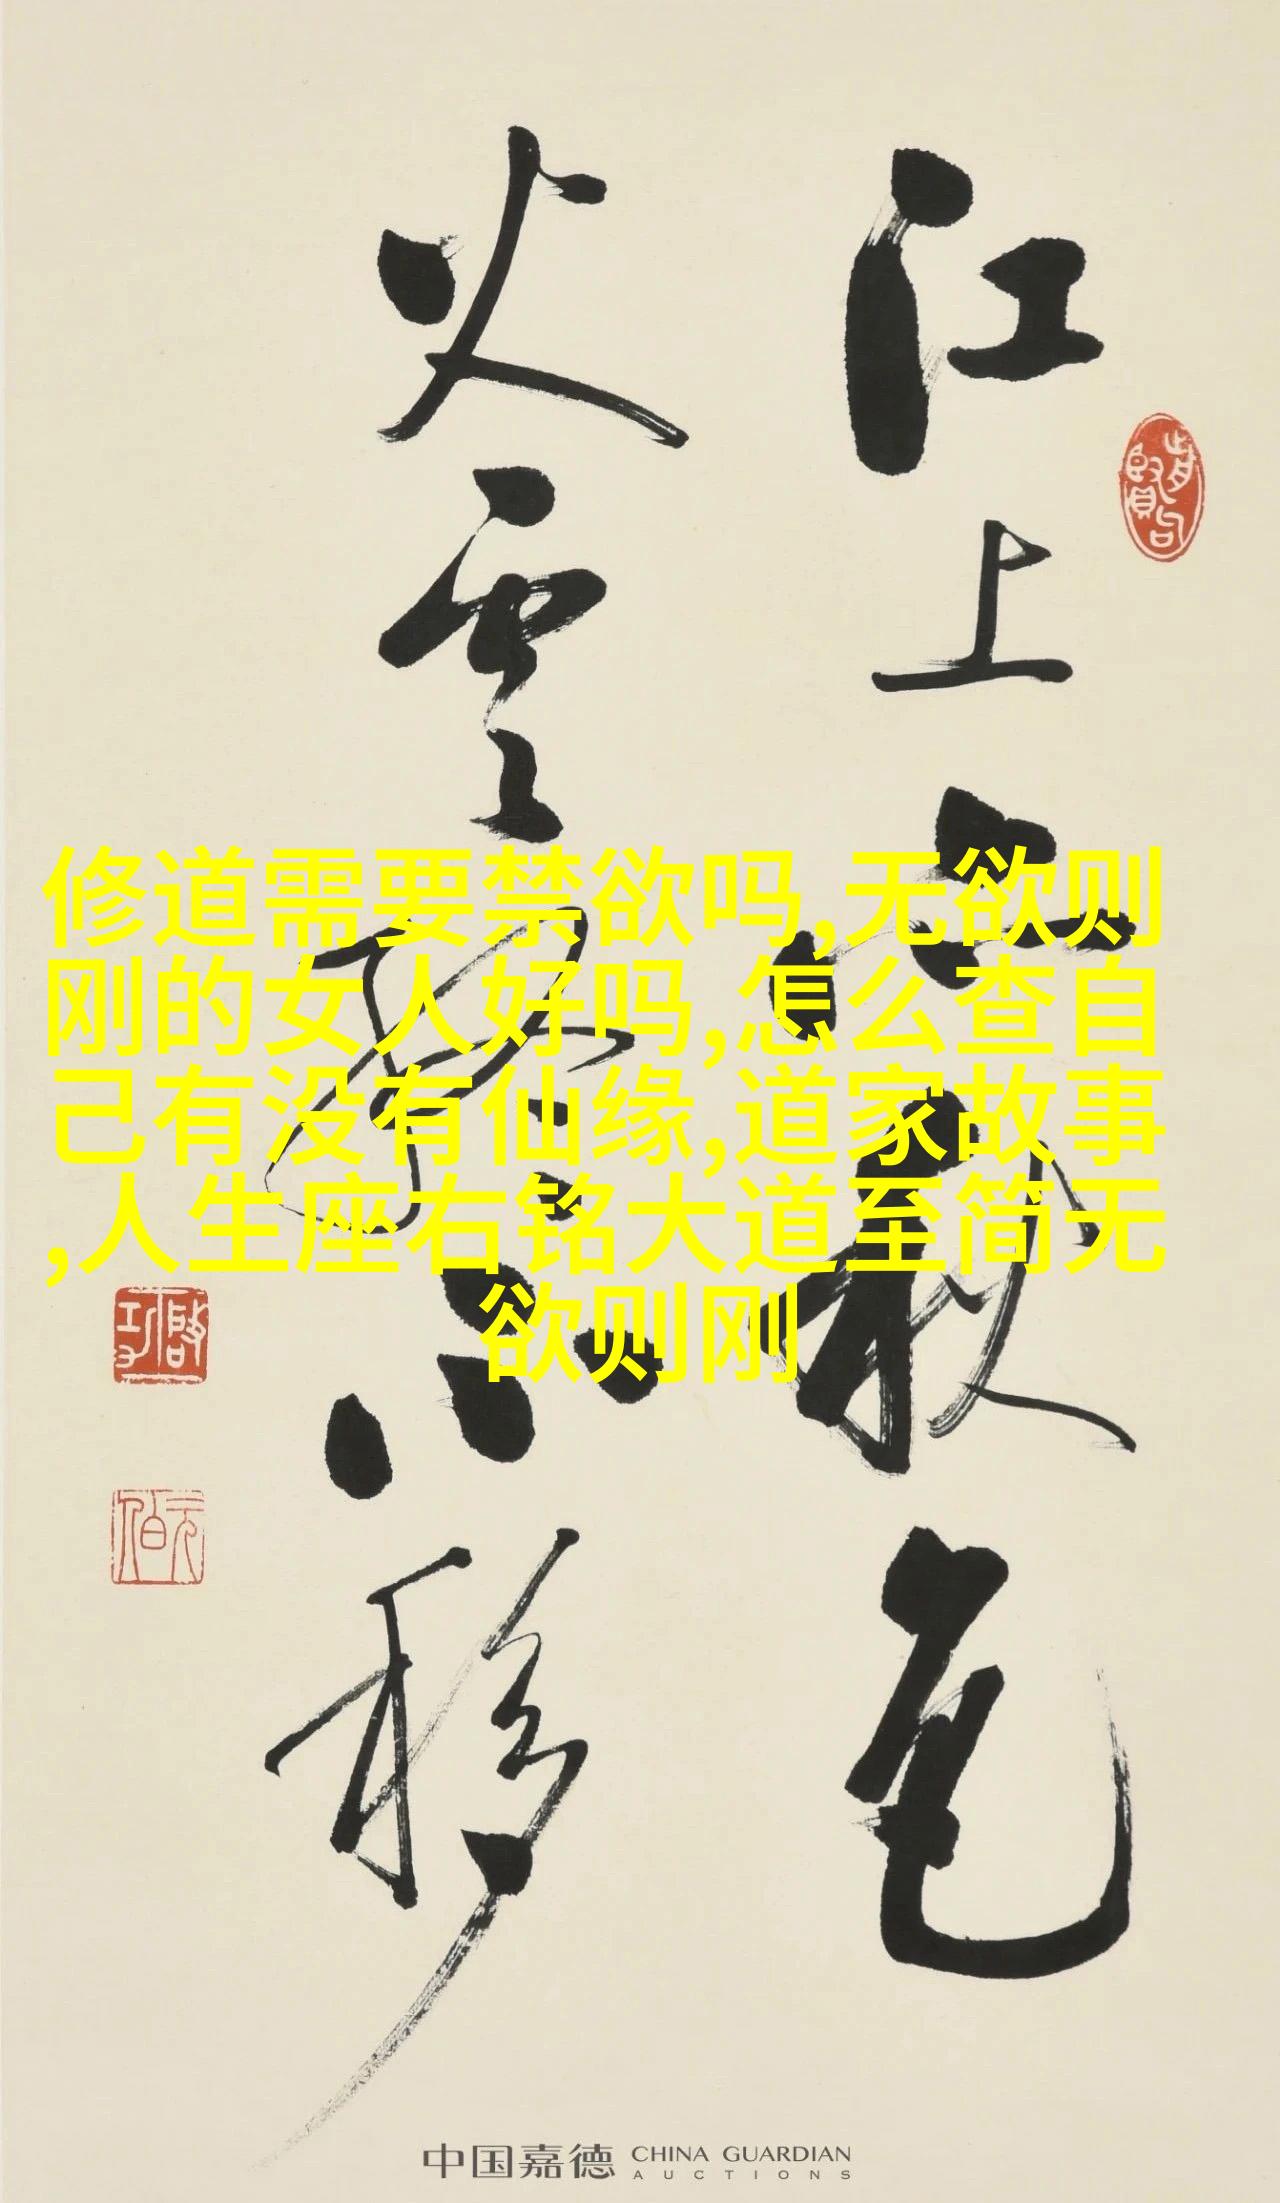 江上亦秋色
火雲終不移
啟功
元白
修道需要禁欲吗,无欲则
刚的女人好吗,怎么查自
己有没有仙缘,道家故事
,人生座右铭大道至简无
欲则刚
中国嘉德 CHINA GUARDIAN
AUCTIONS